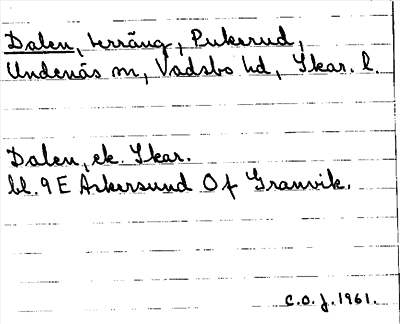 Dalen, terräng, Pukerud,
Undenäs sn, Vadsbo hd, Skar. l.
Dalen, ek. Skar.
bl. 9 E Askersund 0 f Granvik.
C.O.J. 1961.